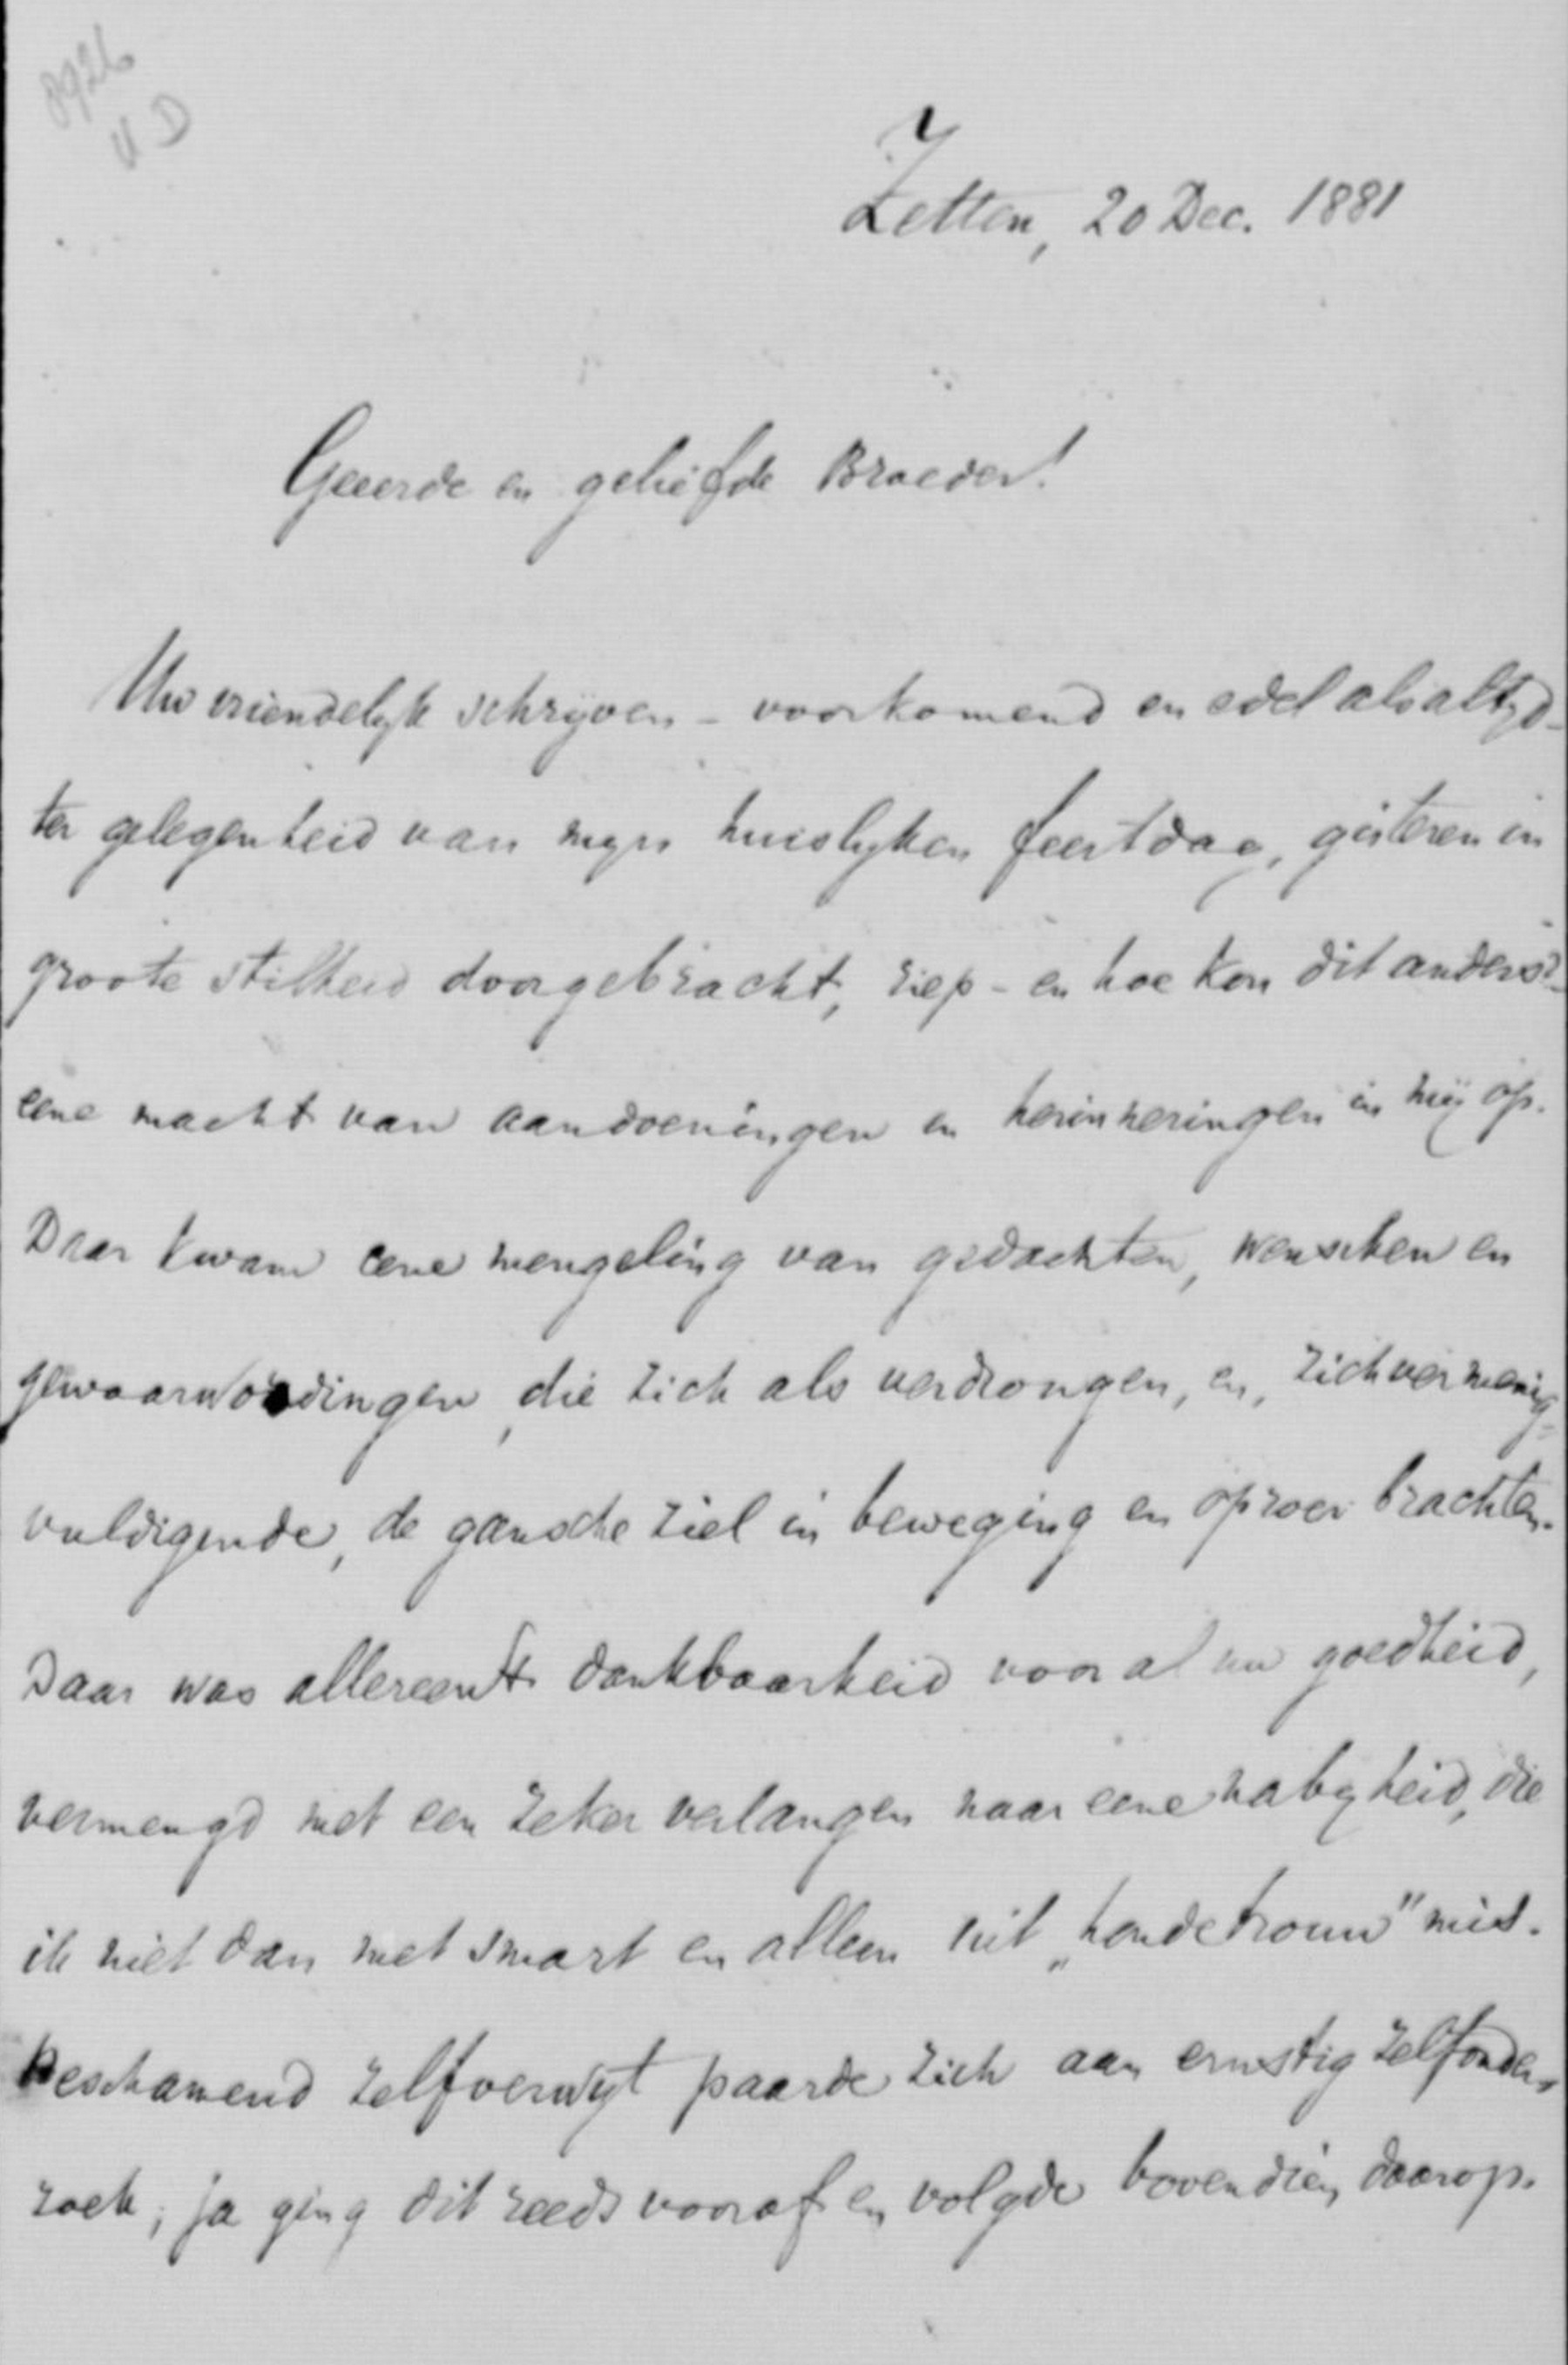 8926
V D
Zetten, 20 Dec. 1881
Geeerde en geliefde Broeder!
Uw vriendelyk schryven - voorkomend en edel als altyd -
ter gelegenheid van myn huislyken feestdag, gisteren in
groote stilheid doorgebracht, riep - en hoe kon dit anders? -
eene macht van aandoeningen en herinneringen in my op.
Daar kwam eene mengeling van gedachten, wenschen en
gewaarwordingen, die zich als verdrongen, en, zich vermenig=
vuldigende, de gansche ziel in beweging en oproer brachten.
Daar was allereerst dankbaarheid voor al uw goedheid,
vermengd met een zeker verlangen naar eene nabyheid, die
ik niet dan met smart en alleen uit „hondetrouw" mis.
Beschamend zelfverwyt paarde zich aan ernstig zelfonder-
zoek; ja ging dit reeds vooraf en volgde bovendien daarop.